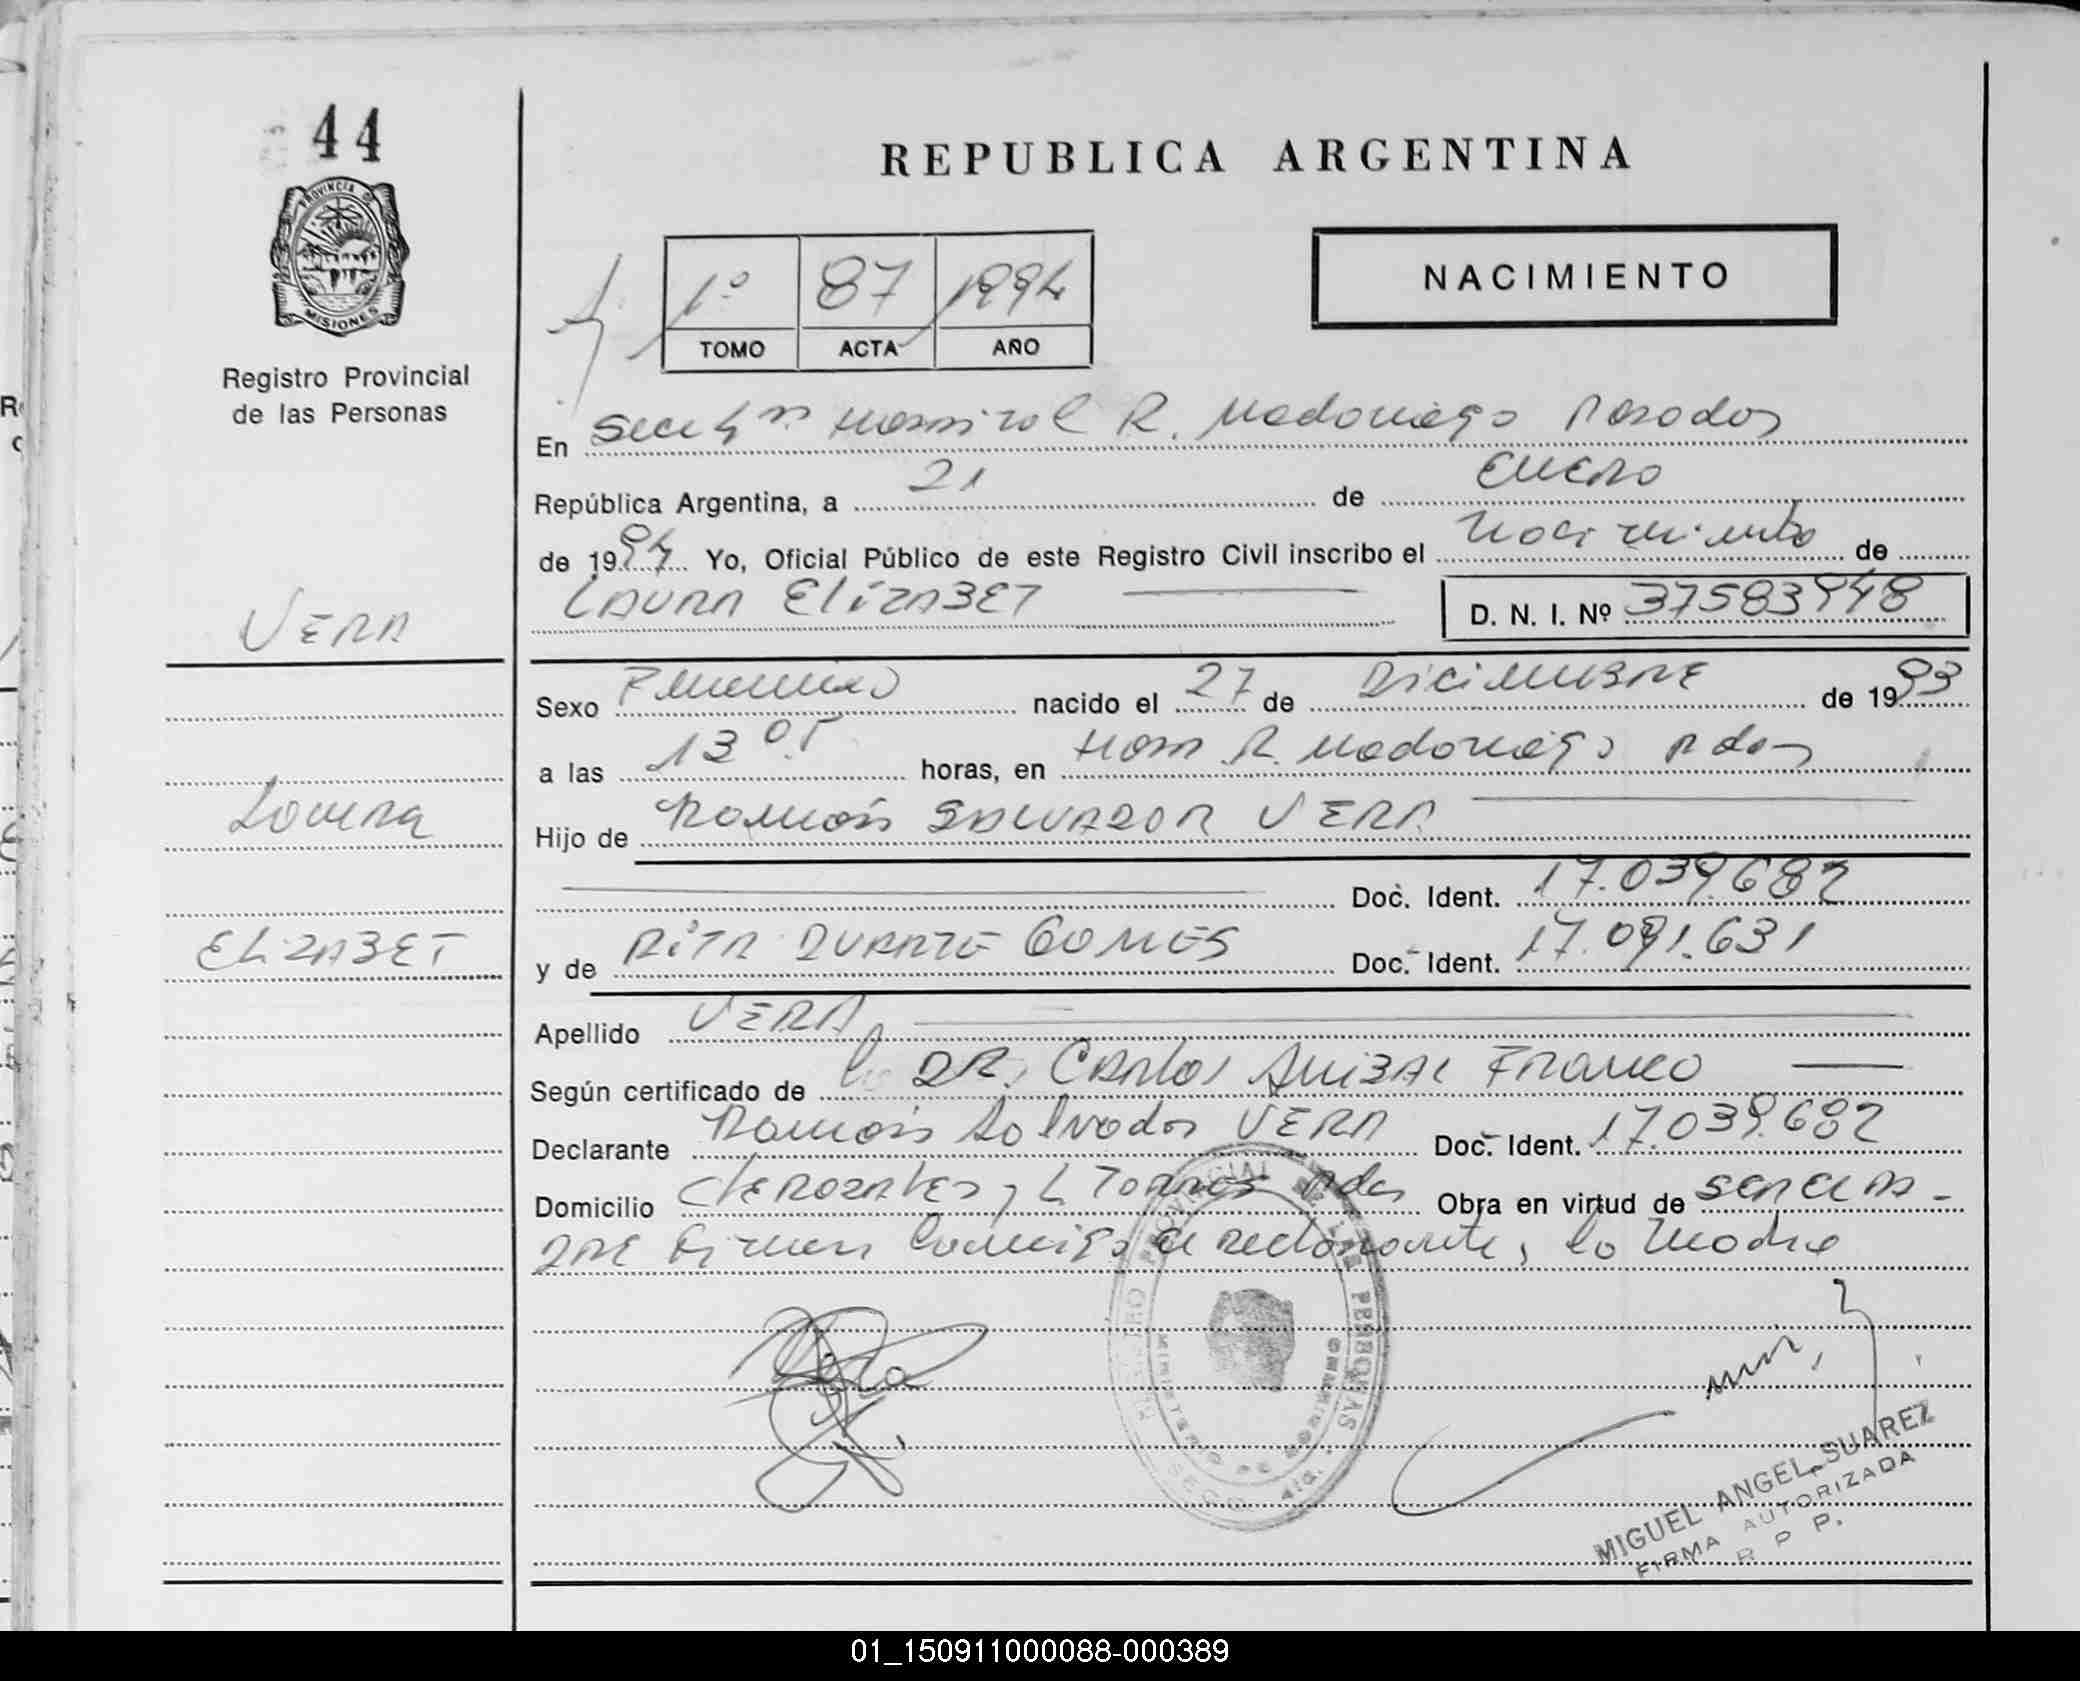 44
PROVINCIA DE
MISIONES
Registro Provincial
de las Personas
VERA
Laura
ELIZABET
REPUBLICA ARGENTINA
1º 87 1994
TOMO ACTA AÑO
NACIMIENTO
En Secc Hospital R. Madariaga Posadas
República Argentina, a 21 de ENERO
de 1994 Yo, Oficial Público de este Registro Civil inscribo el Nacimiento de
LAURA ELIZABET D. N. I. Nº 37583948
Sexo Femenino nacido el 27 de DICIEMBRE de 1993
a las 13 05 horas, en Hosp R. Madariaga Pdas
Hijo de Ramón SALVADOR VERA
Doc. Ident. 17.039.682
y de RITA DUARTE GOMES Doc. Ident. 17.091.631
Apellido VERA
Según certificado de DR. Carlos ANIBAL FRANCO
Declarante Ramón Salvador VERA Doc. Ident. 17.039.682
Domicilio y L Torres Pdas Obra en virtud de SER EL PA-
DRE Firman Conmigo el declarante, la Madre
REGISTRO PROVINCIAL DE LAS PERSONAS
MINISTERIO DE GOBIERNO
MIGUEL ANGEL SUAREZ
FIRMA AUTORIZADA
R P P.
01_150911000088-000389